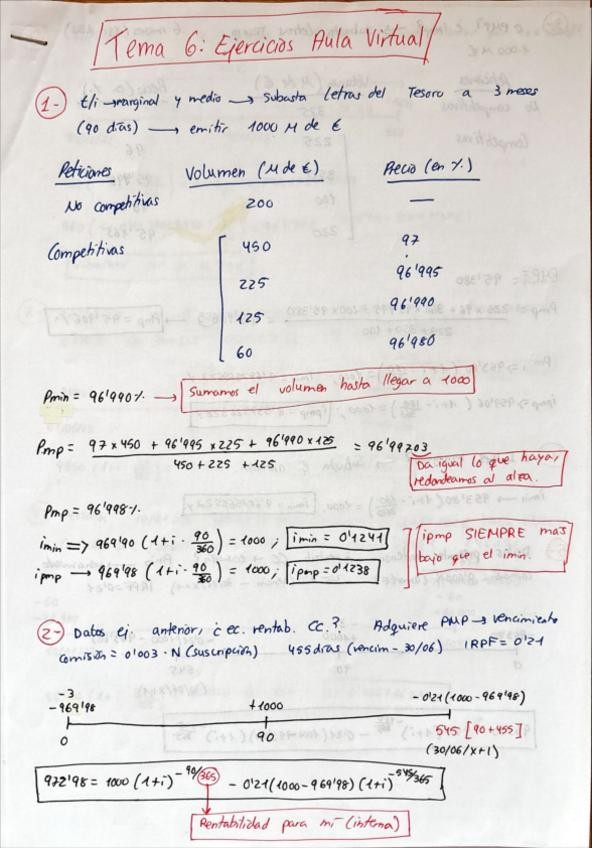 Tema 6: Ejercicios Aula Virtual
1- t/i → marginal y medio → Subasta letras del Tesoro a 3 meses
(90 días) → emitir 1000 M de €
Peticiones Volumen (M de €) Precio (en %)
No competitivas 200 —
Competitivas 450 97
225 96'995
125 96'990
60 96'980
Pmin = 96'990% → Sumamos el volumen hasta llegar a 1000
Pmp = 97 x 450 + 96'995 x 225 + 96'990 x 125 / 450 + 225 + 125 = 96'99703
Da igual lo que haya, redondeamos al alza.
Pmp = 96'998%
imin => 969'90 (1+i · 90/360) = 1000 ; imin = 0'1241
ipmp → 969'98 (1+i · 90/360) = 1000 ; ipmp = 0'1238
ipmp SIEMPRE mas bajo que el imin.
2- Datos ej. anterior, ¿ec. rentab. CC.? Adquiere PMP → vencimiento
Comisión = 0'003 · N (suscripción) 455 días (vencim - 30/06) IRPF = 0'21
-3
-969'98 +1000 -0'21(1000-969'98)
0 90 545 [90+455]
(30/06/x+1)
972'98 = 1000 (1+i)^-90/365 - 0'21(1000-969'98) (1+i)^-545/365
Rentabilidad para mí (interna)